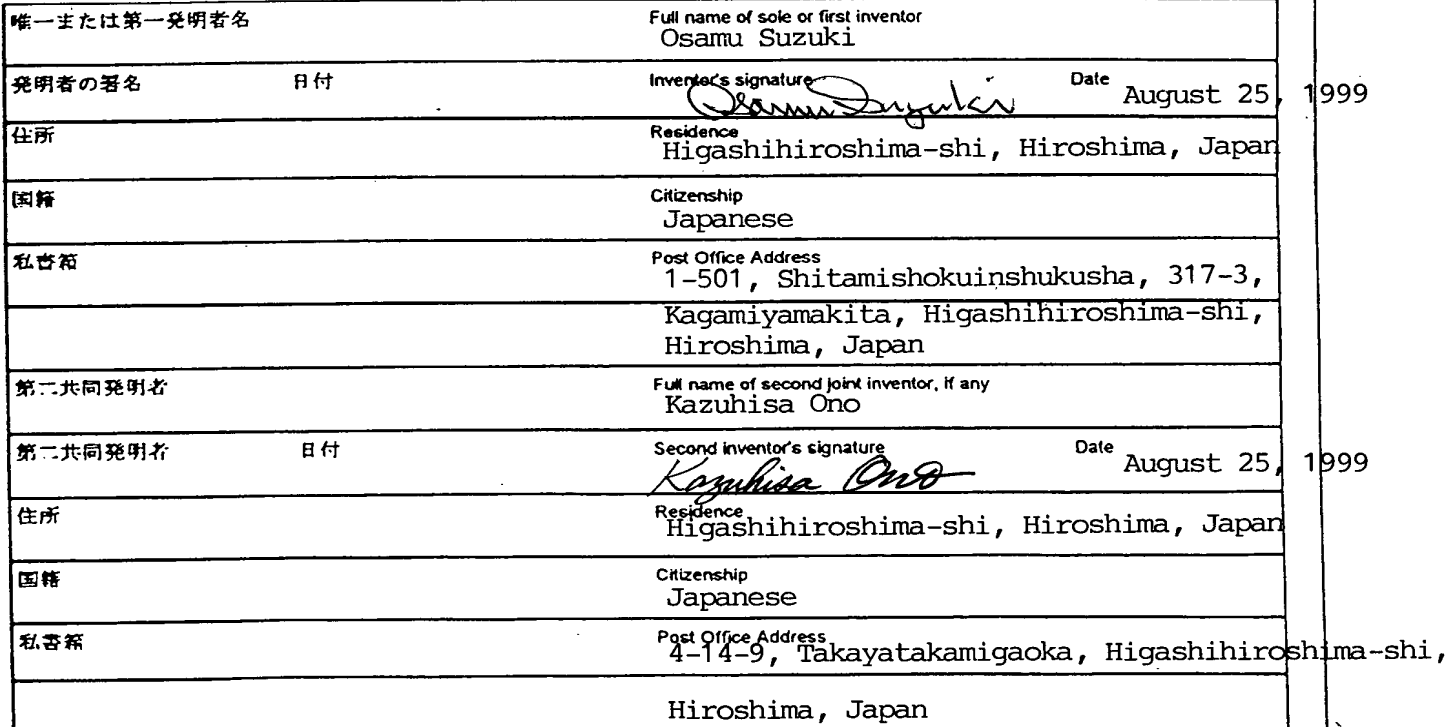 唯一または第一発明者名 Full name of sole or first inventor
Osamu Suzuki
発明者の署名 日付 Inventor's signature Osamu Suzuki Date August 25, 1999
住所 Residence
Higashihiroshima-shi, Hiroshima, Japan
国籍 Citizenship
Japanese
私書箱 Post Office Address
1-501, Shitamishokuinshukusha, 317-3,
Kagamiyamakita, Higashihiroshima-shi,
Hiroshima, Japan
第二共同発明者 Full name of second joint inventor, if any
Kazuhisa Ono
第二共同発明者 日付 Second inventor's signature Kazuhisa Ono Date August 25, 1999
住所 Residence
Higashihiroshima-shi, Hiroshima, Japan
国籍 Citizenship
Japanese
私書箱 Post Office Address
4-14-9, Takayatakamigaoka, Higashihiroshima-shi,
Hiroshima, Japan